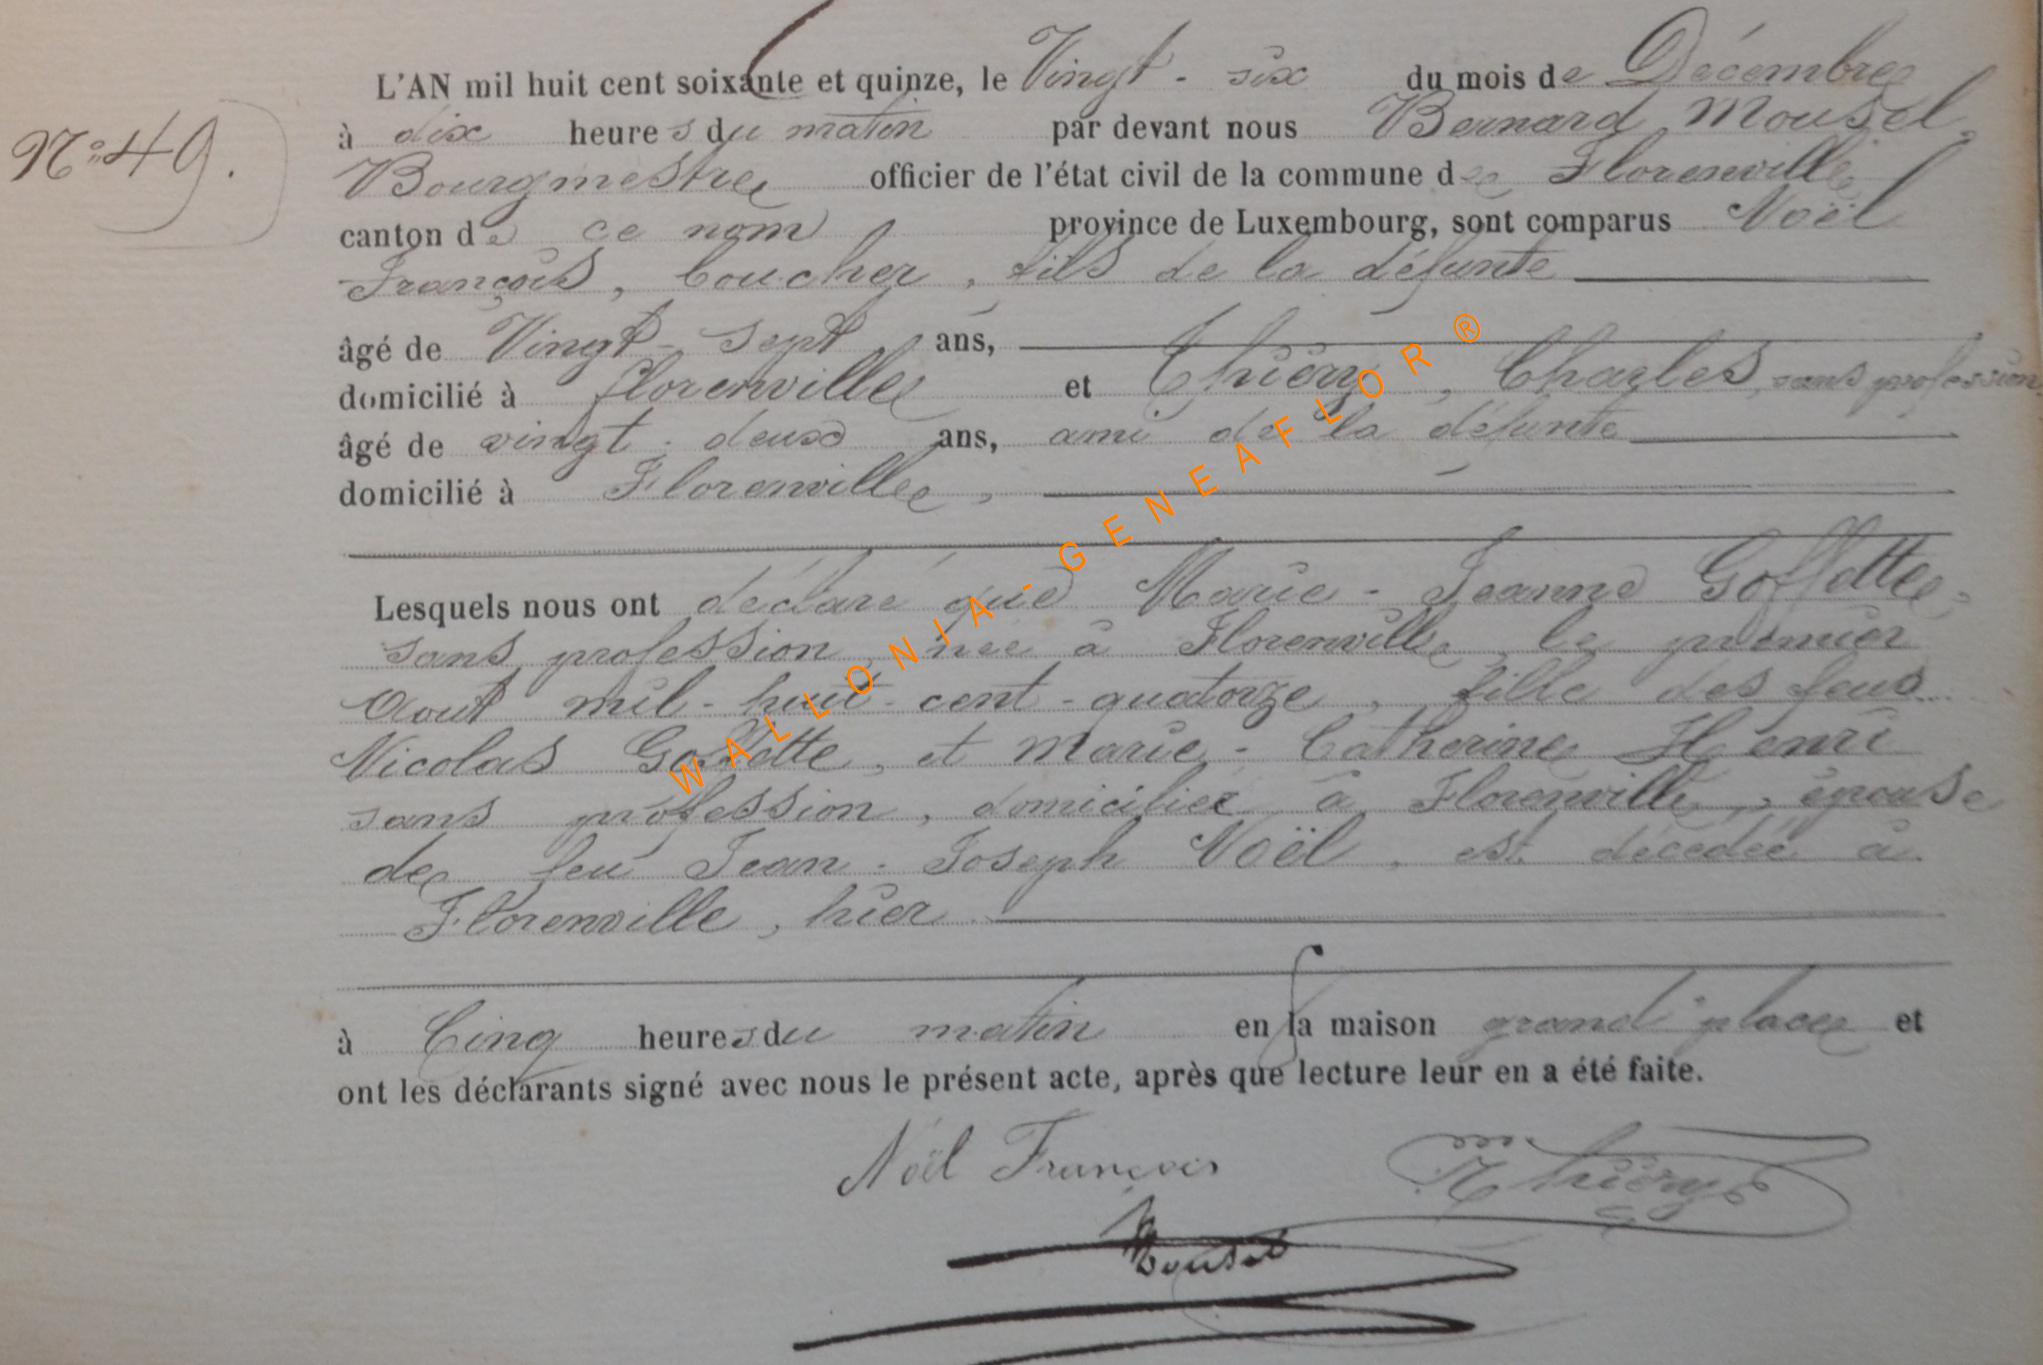 L'AN mil huit cent soixante et quinze, le Vingt - six du mois de Décembre
N° 49.
à dix heures du matin par devant nous Bernard Mousel,
Bourgmestre officier de l'état civil de la commune de Florenville
canton de ce nom province de Luxembourg, sont comparus Noël
François, boucher, fils de la défunte
âgé de Vingt - sept ans,
domicilié à florenville et Thiéry, Charles, sans profession
âgé de vingt - deux ans, ami de la défunte
domicilié à Florenville,
Lesquels nous ont déclaré que Marie - Jeanne Goffette,
sans profession, née à Florenville, le premier
Aout mil - huit - cent - quatorze, fille des feus
Nicolas Goffette, et Marie - Catherine Henri
sans profession, domiciliée à Florenville, épouse
de feu Jean - Joseph Noël, est décédée à
Florenville, hier
à Cinq heures du matin en la maison grand'place et
ont les déclarants signé avec nous le présent acte, après que lecture leur en a été faite.
Noël François Thiéry
Mousel
WALLONIA-GENEAFLOR®